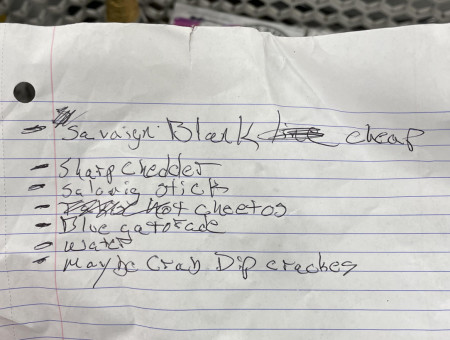 - Savaign Blank cheap
- Sharp Chedder
- Salamig stick
- Hot cheetos
- Blue gatorade
o water
- Maybe Crab Dip crackes